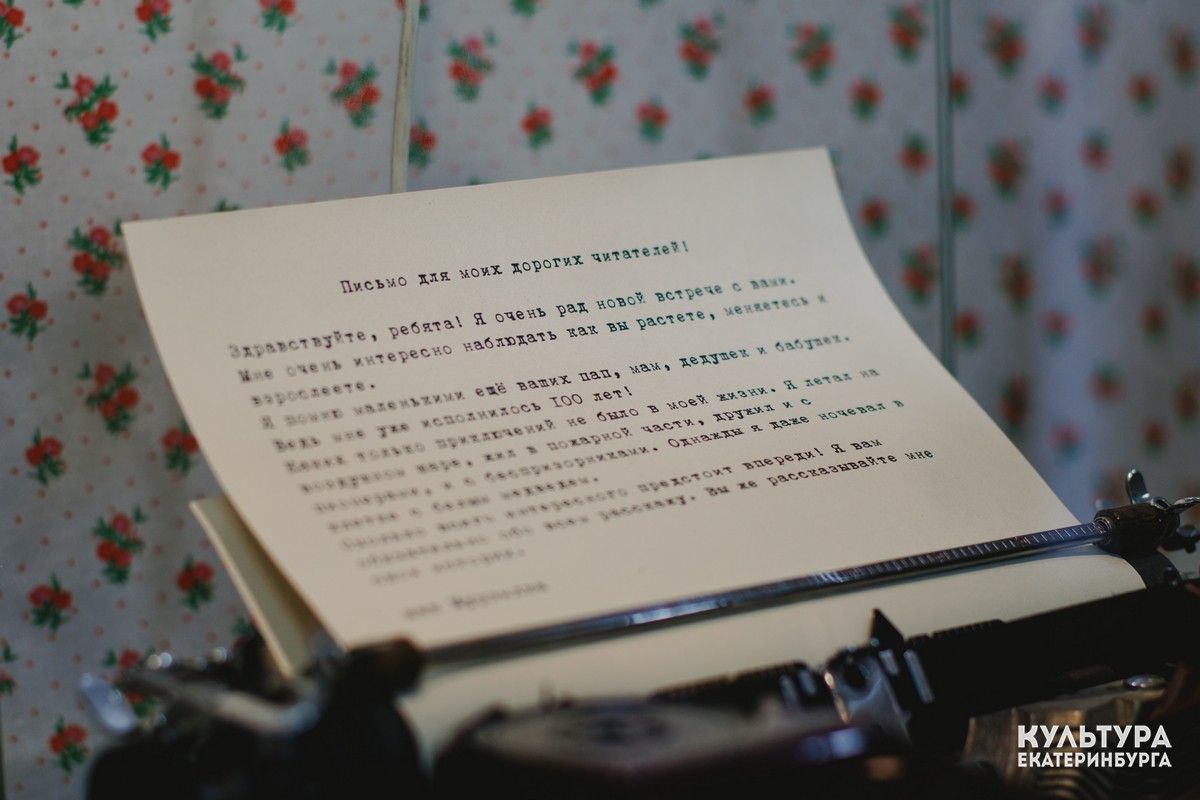 Письмо для моих дорогих читателей!
Здравствуйте, ребята! Я очень рад новой встрече с вами.
Мне очень интересно наблюдать как вы растете, меняетесь и
взрослеете.
Я помню маленькими ещё ваших пап, мам, дедушек и бабушек.
Ведь мне уже исполнилось 100 лет!
Каких только приключений не было в моей жизни. Я летал на
воздушном шаре, жил в пожарной части, дружил и с
пионерами, и с беспризорниками. Однажды я даже ночевал в
клетке с белым медведем.
Сколько всего интересного предстоит впереди! Я вам
обязательно обо всем расскажу. Вы же рассказывайте мне
свои
КУЛЬТУРА
ЕКАТЕРИНБУРГА